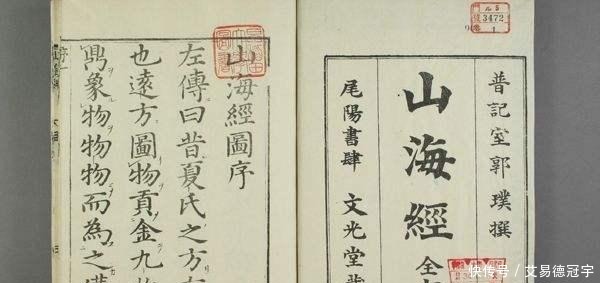 3472
1
普記室郭璞撰
山海經
全
尾陽書肆 文光堂
山海經圖序
左傳曰昔夏氏之方
也遠方圖物貢金九
象物物物而為之備
序一
快传号／艾易德冠宇